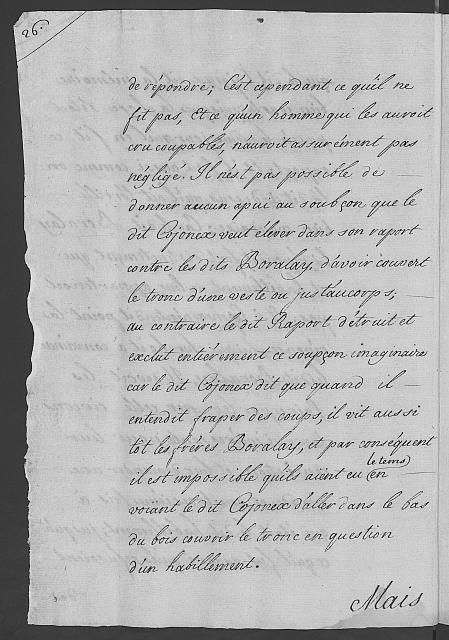 26.
de répondre; C'est cependant ce qu'il ne
fit pas, Et ce qu'un homme qui les auroit
cru coupables, n'auroit assurément pas
négligé. Il n'est pas possible de
donner aucun apui au soubçon que le
dit Cojonex veut élever dans son raport
contre les dits Boralay, d'avoir couvert
le tronc d'une veste ou just'aucorps;
au contraire le dit Raport détruit et
exclut entiérement ce soupçon imaginaire
car le dit Cojonex dit que quand il
entendit fraper des coups, il vit aussi
tôt les fréres Boralay, et par conséquent
il est impossible qu'ils aïent eu (le tems) en
voïant le dit Cojonex d'aller dans le bas
du bois couvrir le tronc en question
d'un habillement.
Mais